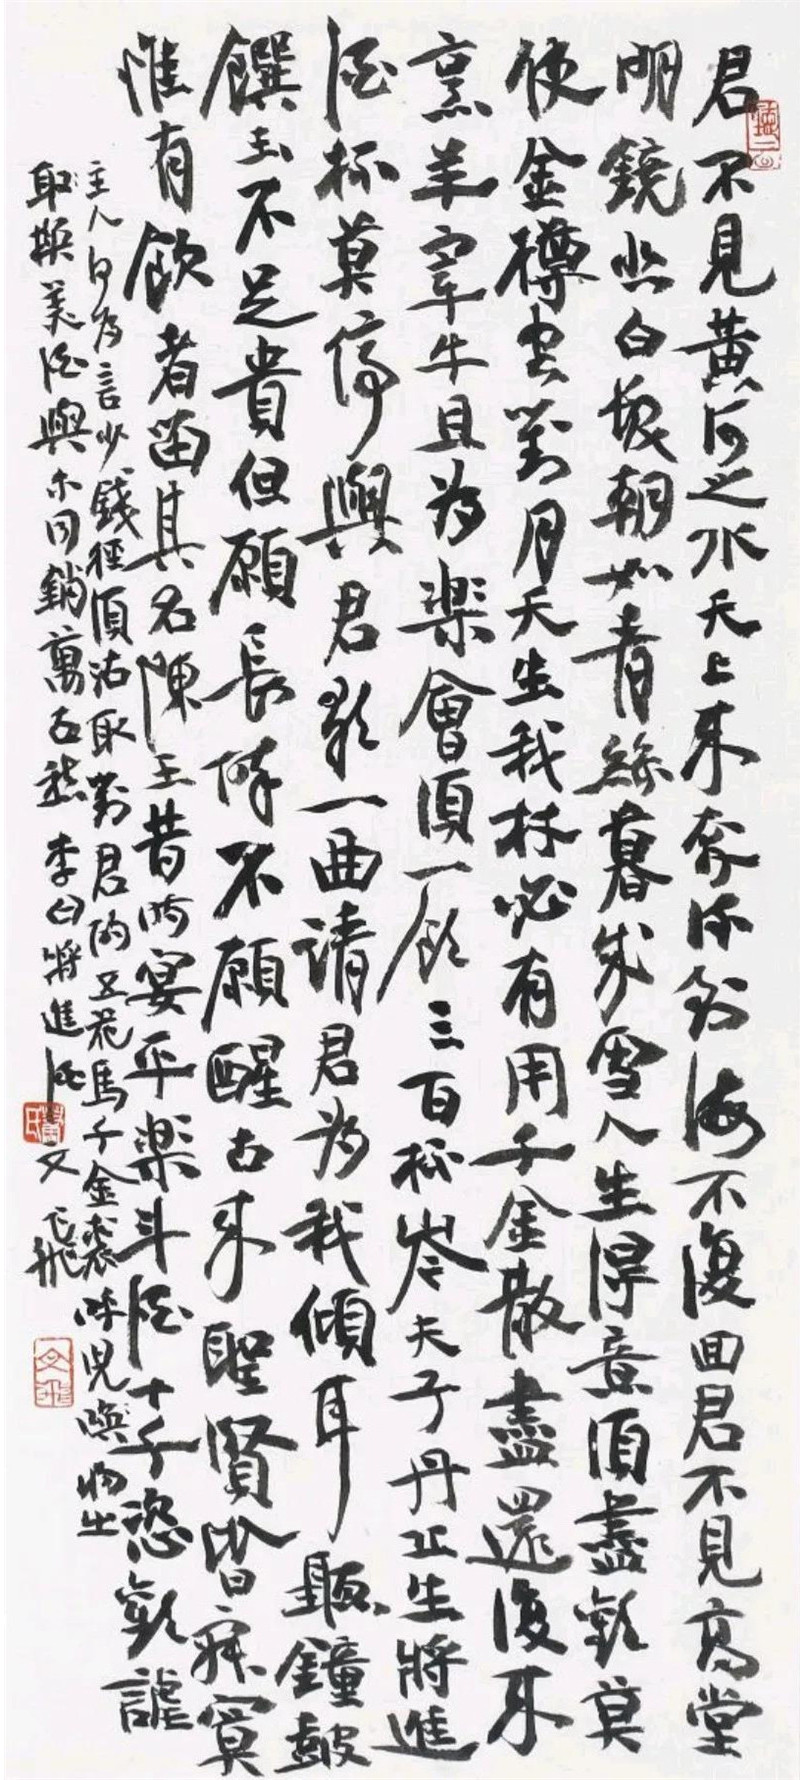 君不見黄河之水天上來奔流到海不復回君不見高堂
明鏡悲白髮朝如青絲暮成雪人生得意須盡歡莫
使金樽空對月天生我材必有用千金散盡還復來
烹羊宰牛且為楽會須一飲三百杯岑夫子丹丘生將進
酒杯莫停與君歌一曲請君為我傾耳聽鐘鼓
饌玉不足貴但願長醉不願醒古來聖賢皆寂寞
惟有飲者留其名陳王昔時宴平楽斗酒十千恣歡謔
主人何為言少錢徑須沽取對君酌五花馬千金裘呼兒喚將出
取換美酒與尓同銷萬古愁 李白將進酒 文飛
文飛